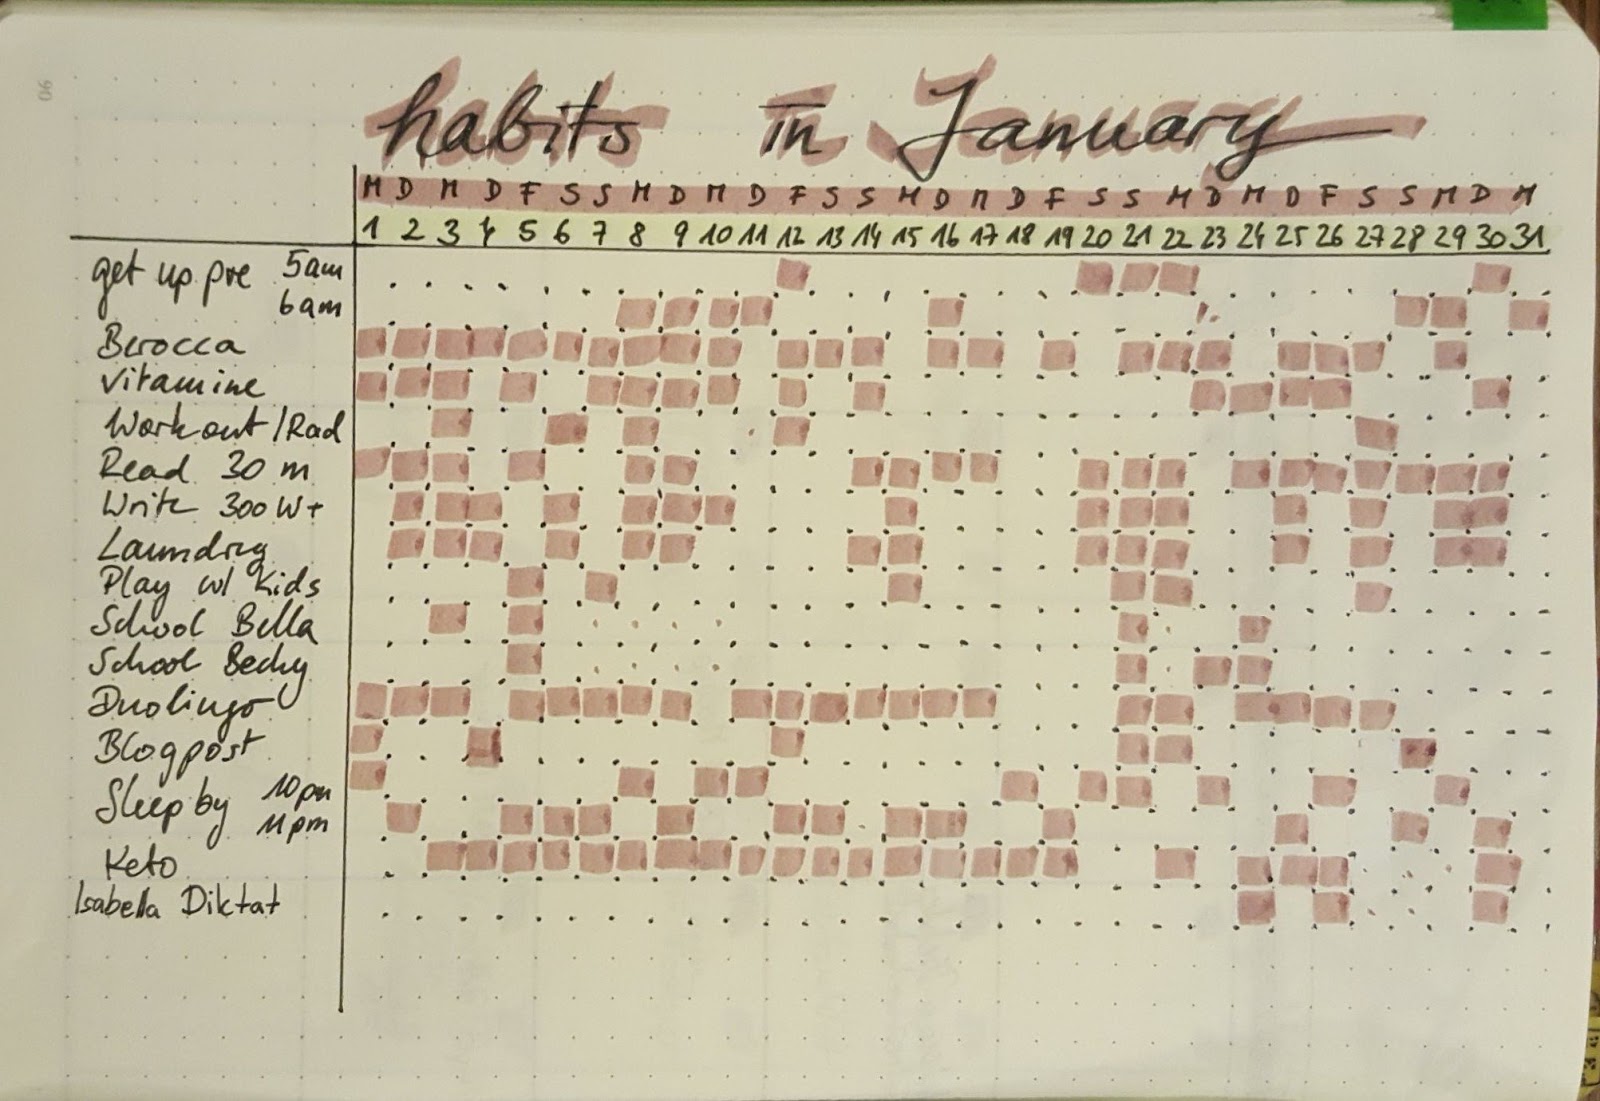 06
habits in January
M D M D F S S M D M D F S S M D M D F S S M D M D F S S M D M
1 2 3 4 5 6 7 8 9 10 11 12 13 14 15 16 17 18 19 20 21 22 23 24 25 26 27 28 29 30 31
get up pre 5am
6am
Berocca
Vitamine
Workout/Rad
Read 30 m
Write 300W+
Laundry
Play w/ Kids
School Bella
School Becky
Duolingo
Blogpost
Sleep by 10pm
11pm
Keto
Isabella Diktat